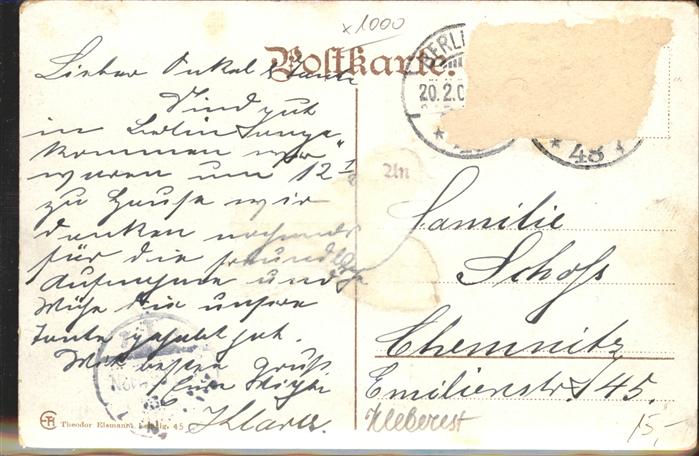 x1000
Postkarte.
BERLI
20.2.0
48
Lieber Onkel & Tante
Sind gut
in Berlin ange
kommen wir
waren um 12 1/2
zu Hause wir
danken nochmals
für die freundliche
Aufnahme und
Mühe die unsre
Tante gehabt hat.
Mit besten Gruß
Klara.
An
Familie
Schofs
Chemnitz
Emilienstr. 45.
Kleberest
15,-
Theodor Eismann, Leipzig. 45